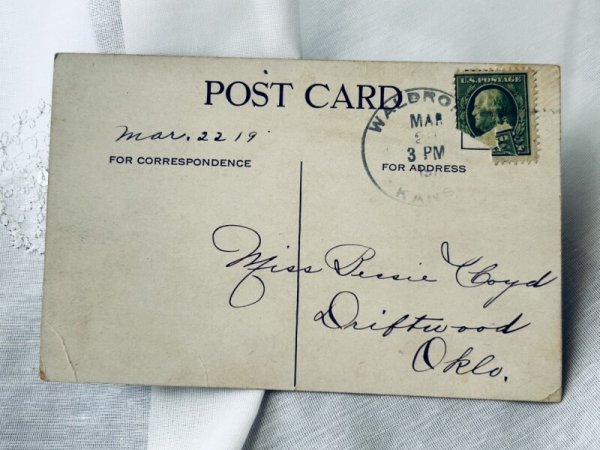 POST CARD
U.S. POSTAGE
WALDRO
MAR
3 PM
KANS
Mar. 22 19
FOR CORRESPONDENCE
FOR ADDRESS
Miss Bessie Cloyd
Driftwood
Okla.